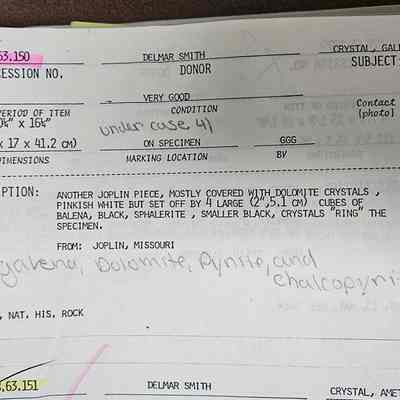 63.150 DELMAR SMITH CRYSTAL, GAL
CESSION NO. DONOR SUBJECT
VERY GOOD
PERIOD OF ITEM CONDITION Contact
¼" x 16¼" under case 41 (photo)
x 17 x 41.2 cm) ON SPECIMEN GGG
DIMENSIONS MARKING LOCATION BY
PTION: ANOTHER JOPLIN PIECE, MOSTLY COVERED WITH DOLOMITE CRYSTALS ,
PINKISH WHITE BUT SET OFF BY 4 LARGE (2",5.1 cm) CUBES OF
BALENA, BLACK, SPHALERITE , SMALLER BLACK, CRYSTALS "RING" THE
SPECIMEN.
FROM: JOPLIN, MISSOURI
galena, Dolomite, Pyrite, and
chalcopyri
, NAT, HIS, ROCK
.63.151 DELMAR SMITH CRYSTAL, AME